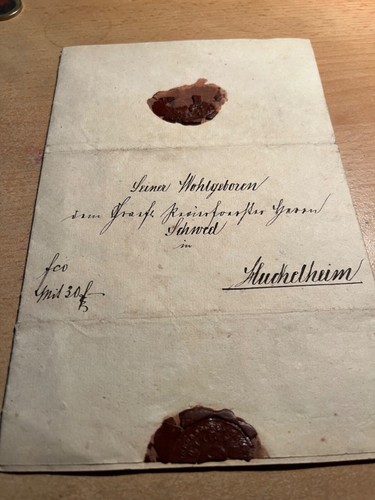 Seiner Wohlgeboren
dem Graefl. Revierfoerster Herrn
Schwed
in
Huckelheim
fco
Mit 30 f